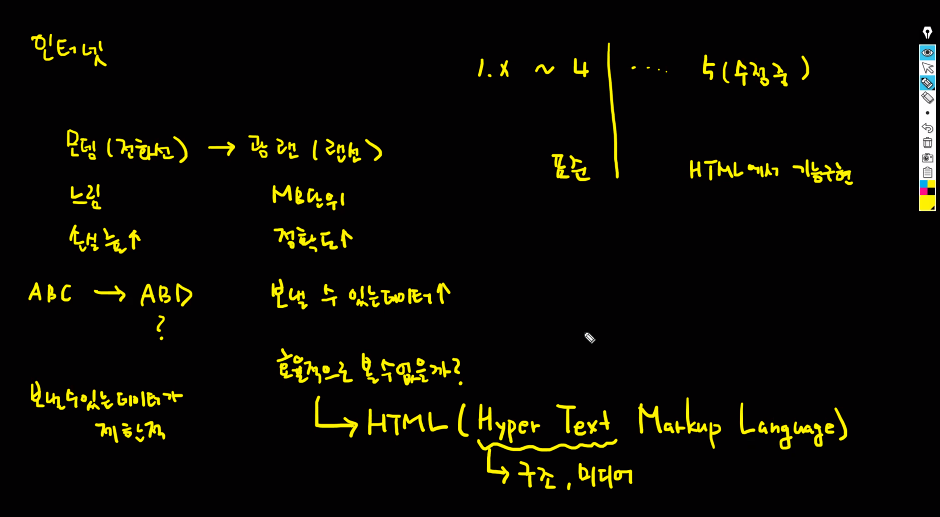 인터넷
1.x ~ 4 .... 5(수정중)
표준 HTML에서 기능구현
모뎀(전화선) → 광랜(랜선)
느림 MB단위
손실율↑ 정확도↑
ABC → ABD
?
보낼 수 있는 데이터↑
보낼 수 있는 데이터가
제한적
효율적으로 볼 수 없을까?
↳ HTML (Hyper Text Markup Language)
↳ 구조, 미디어